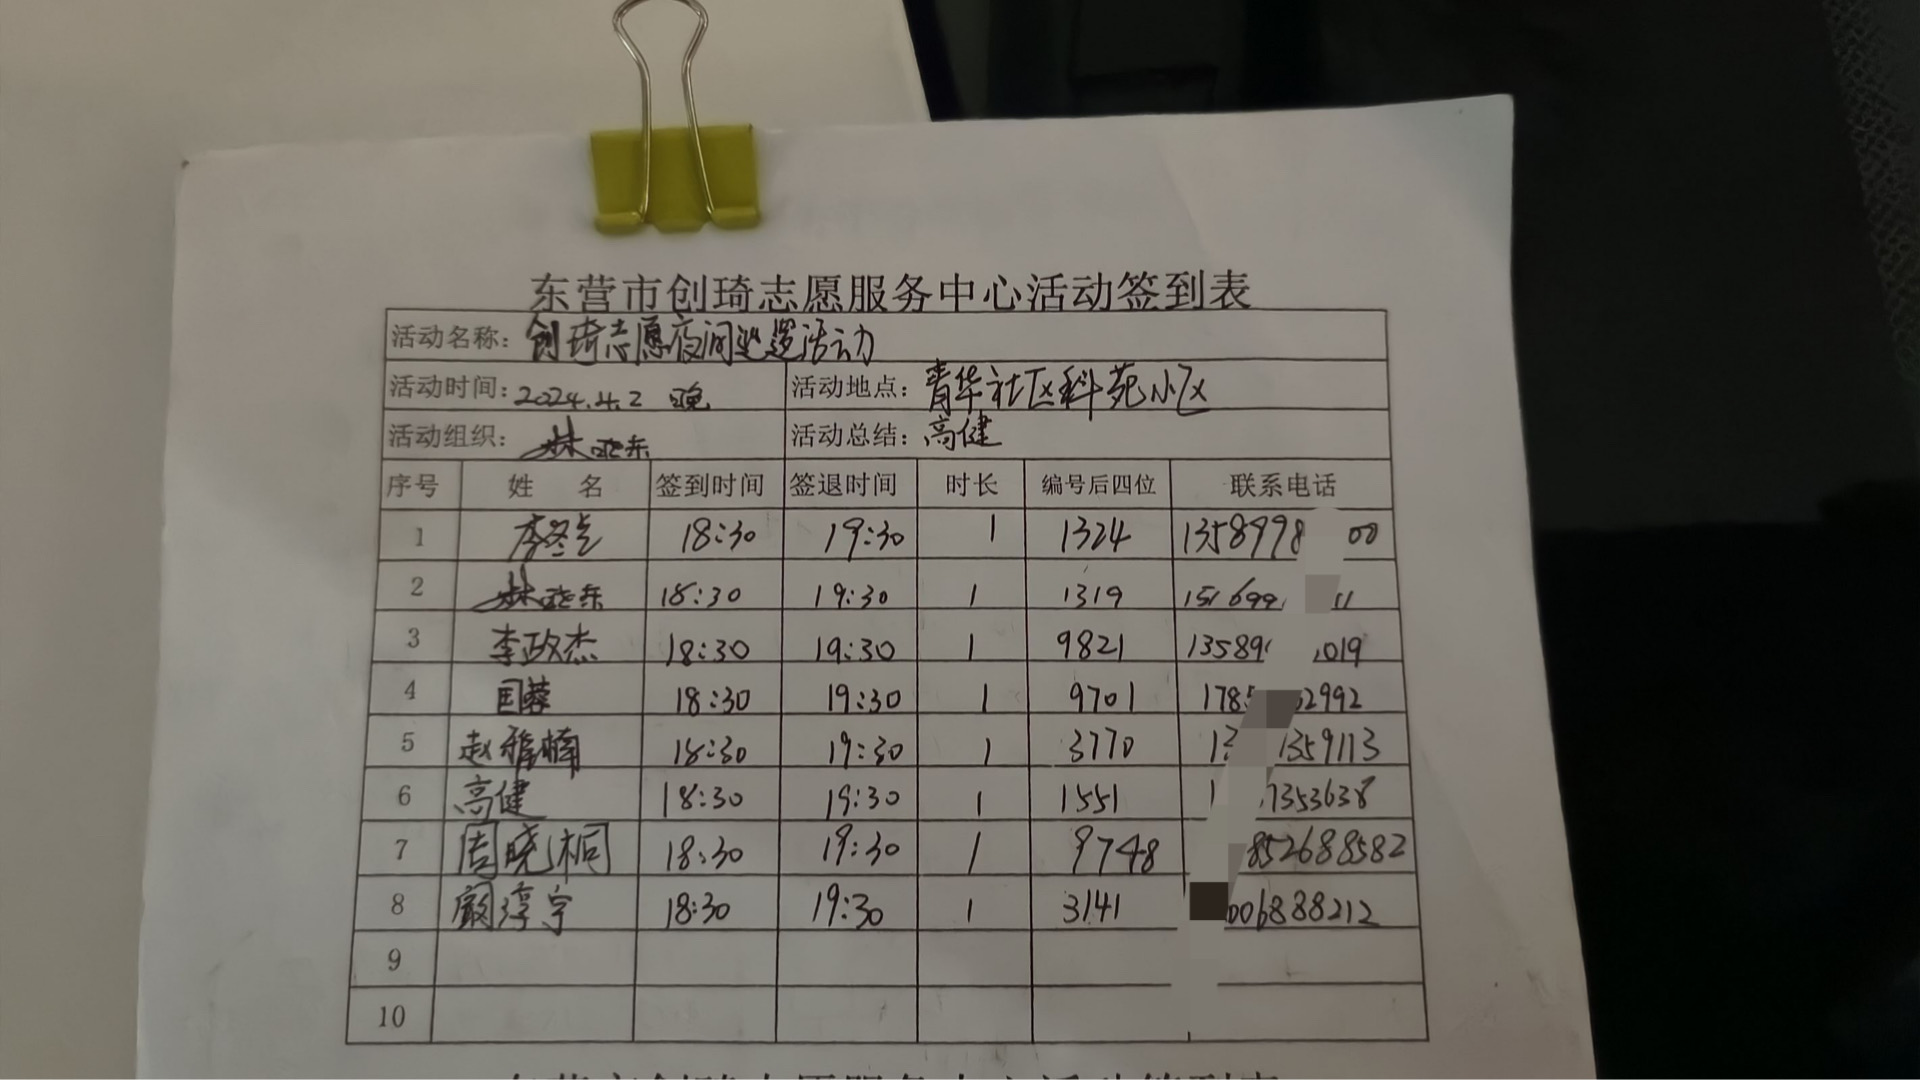 东营市创琦志愿服务中心活动签到表
活动名称: 创琦志愿夜间巡逻活动
活动时间: 2024.4.2 晚 活动地点: 青华社区科苑小区
活动组织: 林晓东 活动总结: 高健
序号 姓 名 签到时间 签退时间 时长 编号后四位 联系电话
1 李冬 18:30 19:30 1 1324 1358998 00
2 林晓东 18:30 19:30 1 1319 151699 11
3 李政杰 18:30 19:30 1 9821 13589 019
4 国蓉 18:30 19:30 1 9701 178 2992
5 赵雅楠 18:30 19:30 1 3770 13 1359113
6 高健 18:30 19:30 1 1551 1 7353638
7 周晓桐 18:30 19:30 1 9748 852688582
8 淳宇 18:30 19:30 1 3141 006888212
9
10